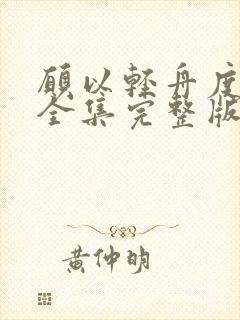 願以軽舟度
全集完整版
黄仲明